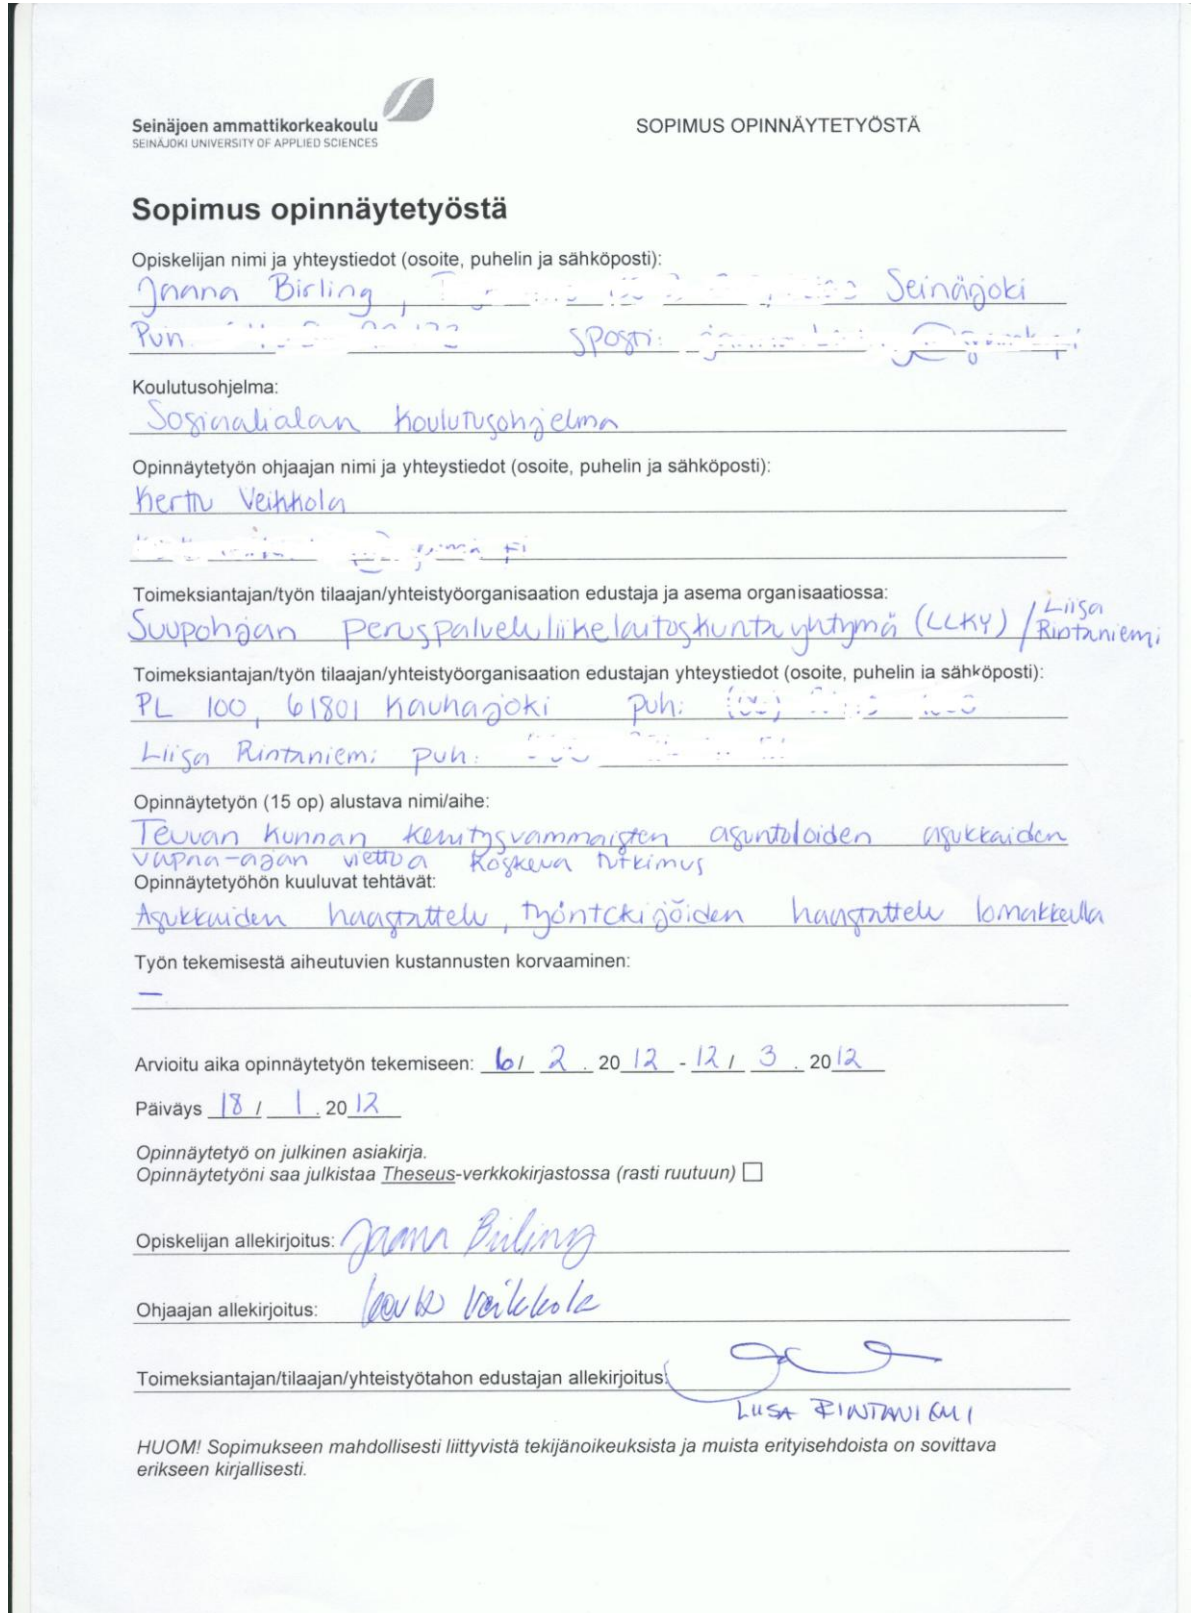 Seinäjoen ammattikorkeakoulu
SEINÄJOKI UNIVERSITY OF APPLIED SCIENCES
SOPIMUS OPINNÄYTETYÖSTÄ
Sopimus opinnäytetyöstä
Opiskelijan nimi ja yhteystiedot (osoite, puhelin ja sähköposti):
Jaana Birling, Seinäjoki
Puh. sposti:
Koulutusohjelma:
Sosiaalialan koulutusohjelma
Opinnäytetyön ohjaajan nimi ja yhteystiedot (osoite, puhelin ja sähköposti):
Kerttu Veikkola
fi
Toimeksiantajan/työn tilaajan/yhteistyöorganisaation edustaja ja asema organisaatiossa:
Suupohjan peruspalveluliikelaitoskuntayhtymä (LLKY) / Liisa Rintaniemi
Toimeksiantajan/työn tilaajan/yhteistyöorganisaation edustajan yhteystiedot (osoite, puhelin ja sähköposti):
PL 100, 61801 Kauhajoki puh:
Liisa Rintaniemi puh:
Opinnäytetyön (15 op) alustava nimi/aihe:
Teuvan kunnan kehitysvammaisten asuntoloiden asukkaiden
vapaa-ajan viettoa koskeva tutkimus
Opinnäytetyöhön kuuluvat tehtävät:
Asukkaiden haastattelu, työntekijöiden haastattelu lomakkeella
Työn tekemisestä aiheutuvien kustannusten korvaaminen:
—
Arvioitu aika opinnäytetyön tekemiseen: 6/ 2 . 2012 - 12/ 3 . 2012
Päiväys 18 / 1 . 2012
Opinnäytetyö on julkinen asiakirja.
Opinnäytetyöni saa julkistaa Theseus-verkkokirjastossa (rasti ruutuun) ☐
Opiskelijan allekirjoitus: Jaana Birling
Ohjaajan allekirjoitus: Kerttu Veikkola
Toimeksiantajan/tilaajan/yhteistyötahon edustajan allekirjoitus:
LIISA RINTANIEMI
HUOM! Sopimukseen mahdollisesti liittyvistä tekijänoikeuksista ja muista erityisehdoista on sovittava
erikseen kirjallisesti.